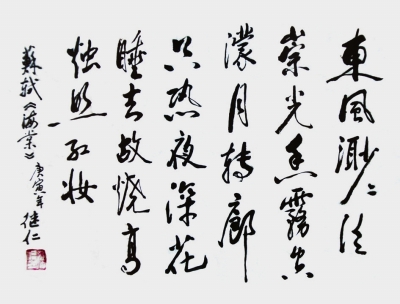 東風渺々泛
崇光香霧空
濛月轉廊
只恐夜深花
睡去故燒高
烛照红妆
蘇軾《海棠》庚寅年